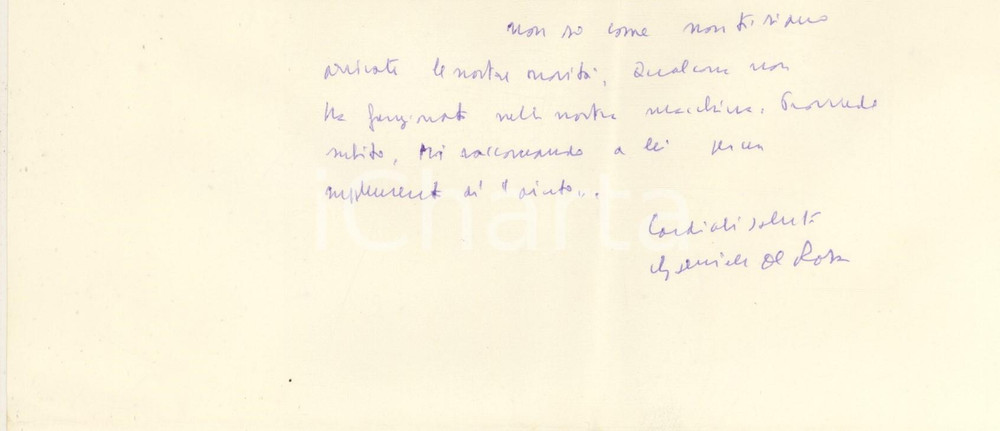 non so come non ti siano
arrivate le nostre novità. Qualcosa non
ha funzionato nella nostra macchina. Provvedo
subito. Mi raccomando a lei per un
supplemento di "aiuto".
Cordiali saluti
Gabriele De Rosa
iCharta